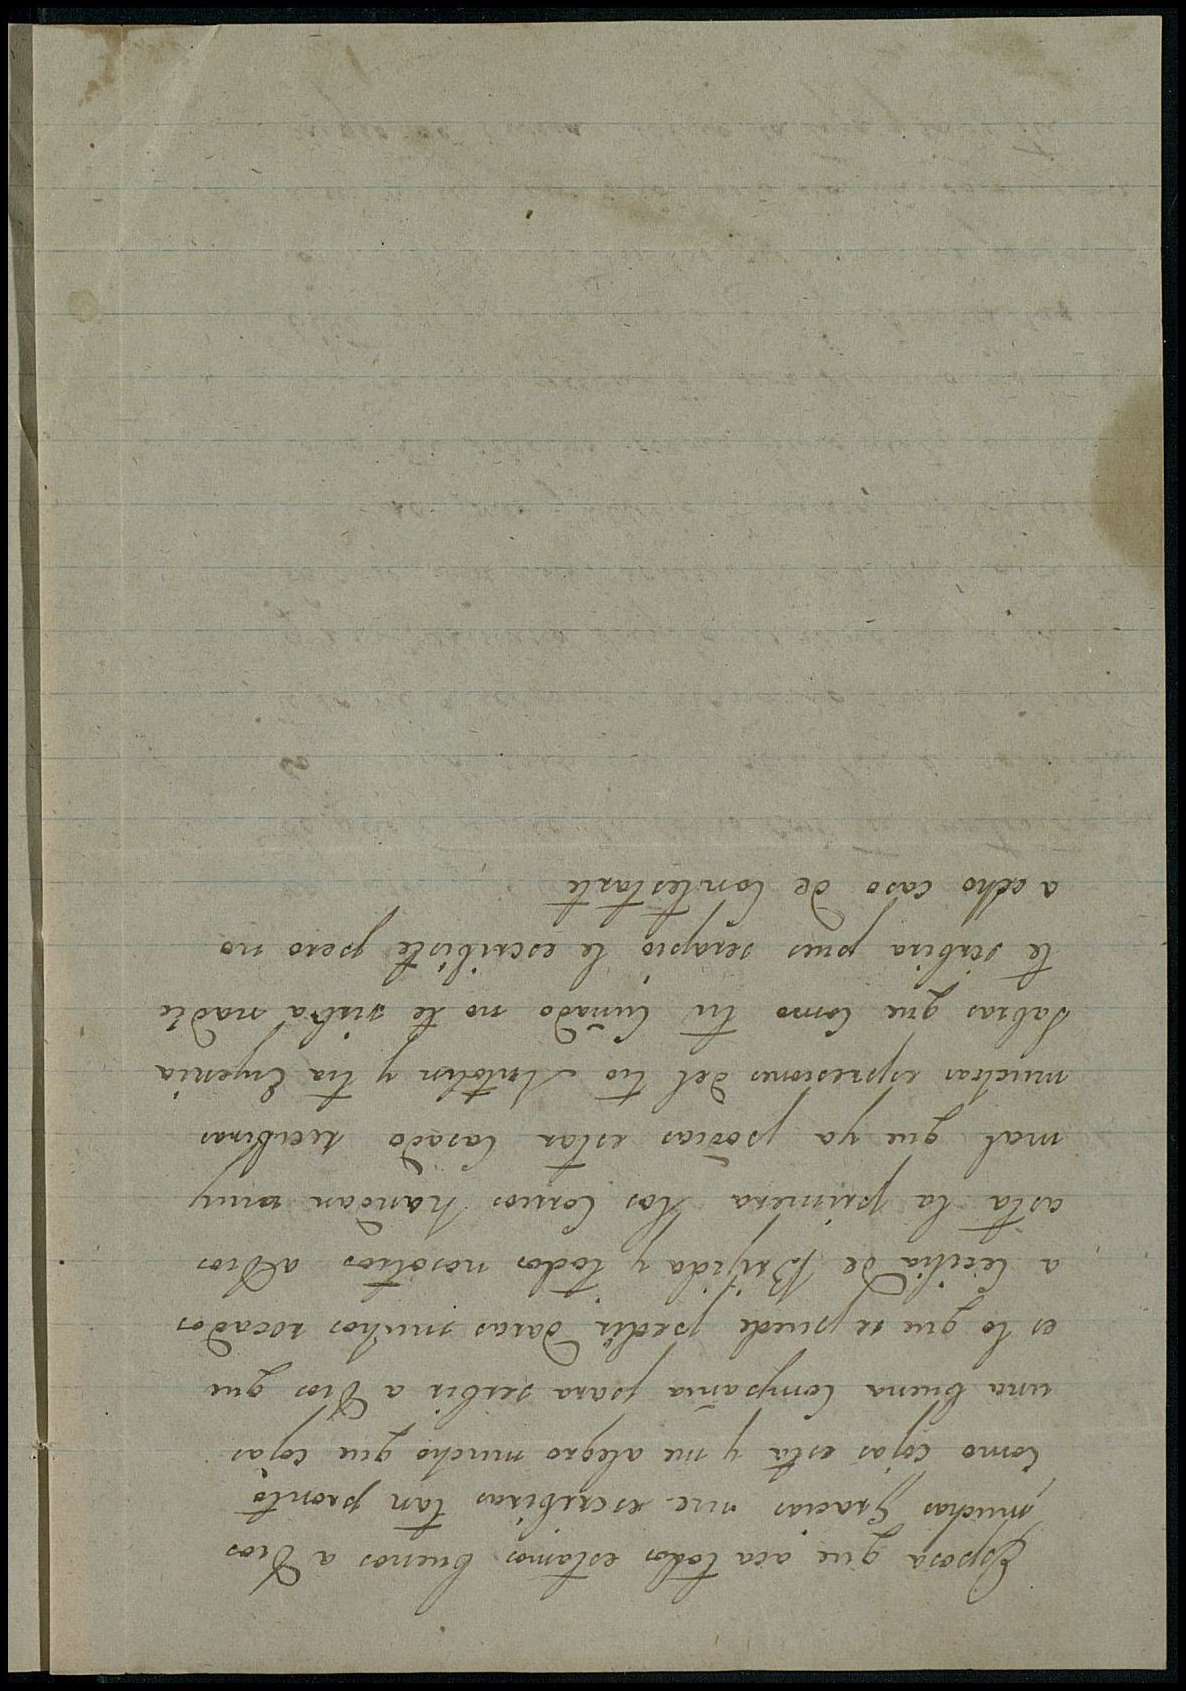 Esposa que aca todos estamos buenos a Dios
muchas Gracias me escrebiras tan pronto
como cojas esta y me alegro mucho que cojas
una buena Compañia para serbir a Dios que
es lo que se puede pedir daras muchos recados
a Cicilia de Brijida y todos nosotros a Dios
asta la primera Los Correos handan muy
mal que ya podias estar Casado recibiras
muchas espresiones del tio Antolin y tia Eugenia
Sabras que Como tu Cuñado no te sirba nadie
te sirbira pues serapio le escribiste pero no
a echo caso de Contestarte